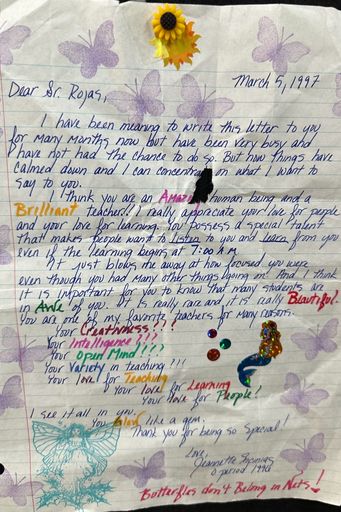 March 5, 1997
Dear Sr. Rojas,
I have been meaning to write this letter to you
for many months now but have been very busy and
have not had the chance to do so. But now things have
calmed down and I can concentrate on what I want to
say to you.
I think you are an Amazing human being and a
Brilliant teacher!! I really appreciate your love for people
and your love for learning. You possess a special talent
that makes people want to listen to you and learn from you
even if the learning begins at 7:00 A.M
It just blows me away at how focused you were
even though you had many other things going on! And I think
it is important for you to know that many students are
in Awe of you. It is really rare and it is really Beautiful!
You are one of my favorite teachers for many reasons.
Your Creativness!!!
Your Intelligence!!!
Your Open Mind!!!
Your Variety in teaching!!!
Your love for Teaching
Your love for Learning
Your love for People!
I see it all in you.
You Glow like a gem.
Thank you for being so Special!
Love,
Jeannette
0 period 1996
Butterflies don't Belong in Nets!